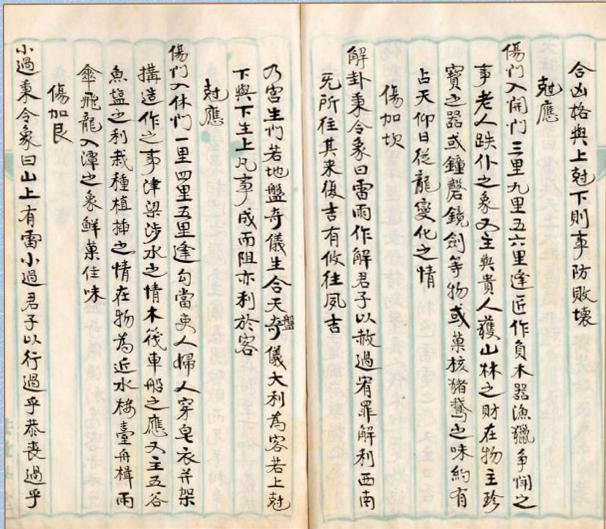 合凶格與上尅下則事防敗壞
尅應
傷門入開門三里九里五六里逢匠作負木器漁獵爭鬧之
事老人跌仆之象又主與貴人獲山林之財在物主珍
寶之器或鐘磬鏡劍等物或菓核猪鵞之味約有
占天仰日從龍變化之情
傷加坎
解卦東令象曰雷雨作解君子以赦過宥罪解利西南
旡所往其来復吉有攸往夙吉
乃宮生門若地盤奇儀生合天盤奇儀大利為客若上尅
下與下生上凡事成而阻亦利於客
尅應
傷門入休門一里四里五里逢勾當吏人婦人穿皂衣并架
搆造作之事津梁涉水之情木筏車船之應又主五谷
魚塩之利栽種植揷之情在物為近水樓臺舟楫雨
傘飛龍入潭之象鮮菓佳味
傷加艮
小過東令象曰山上有雷小過君子以行過乎恭喪過乎